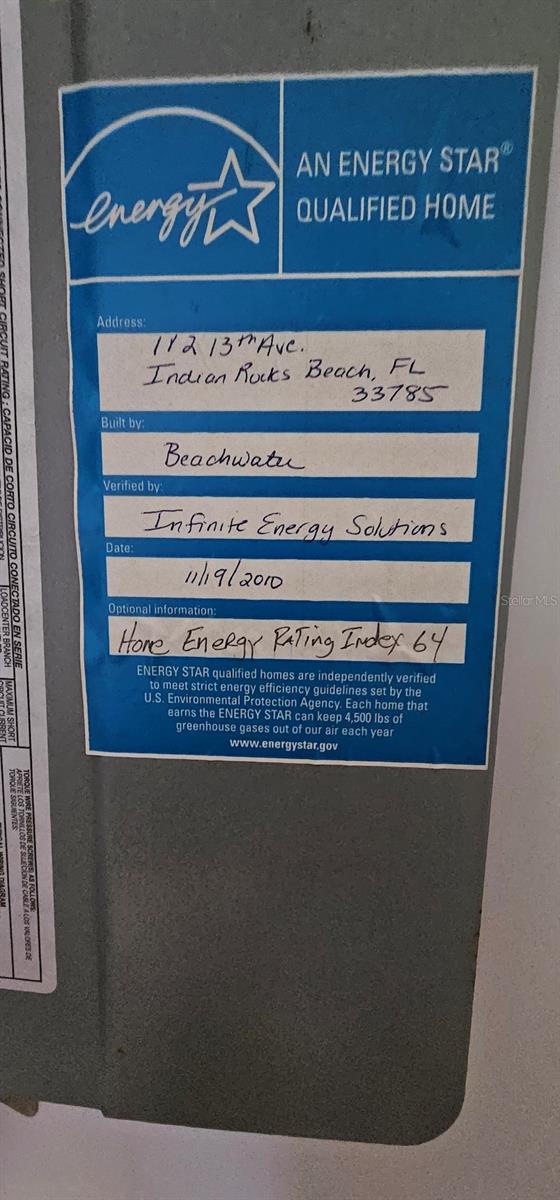 energy
AN ENERGY STAR®
QUALIFIED HOME
Address:
112 13th Ave.
Indian Rocks Beach, FL
33785
Built by:
Beachwater
Verified by:
Infinite Energy Solutions
Date:
11/19/2010
Optional information:
Home Energy RATing Index 64
ENERGY STAR qualified homes are independently verified
to meet strict energy efficiency guidelines set by the
U.S. Environmental Protection Agency. Each home that
earns the ENERGY STAR can keep 4,500 lbs of
greenhouse gases out of our air each year
www.energystar.gov
Stellar MLS
SHORT CIRCUIT RATING : CAPACID DE CORTO CIRCUITO CONECTADO EN SERIE
LOADCENTER BRANCH
MAXIMUM SHORT
CIRCUIT CURRENT
TORQUE WIRE PRESSURE SCREWS AS FOLLOWS:
APRIETE LOS TORNILLOS DE SUJECION DE CABLE A LOS VALORES DE
TORQUE SIGUIENTES:
WIRING DIAGRAM